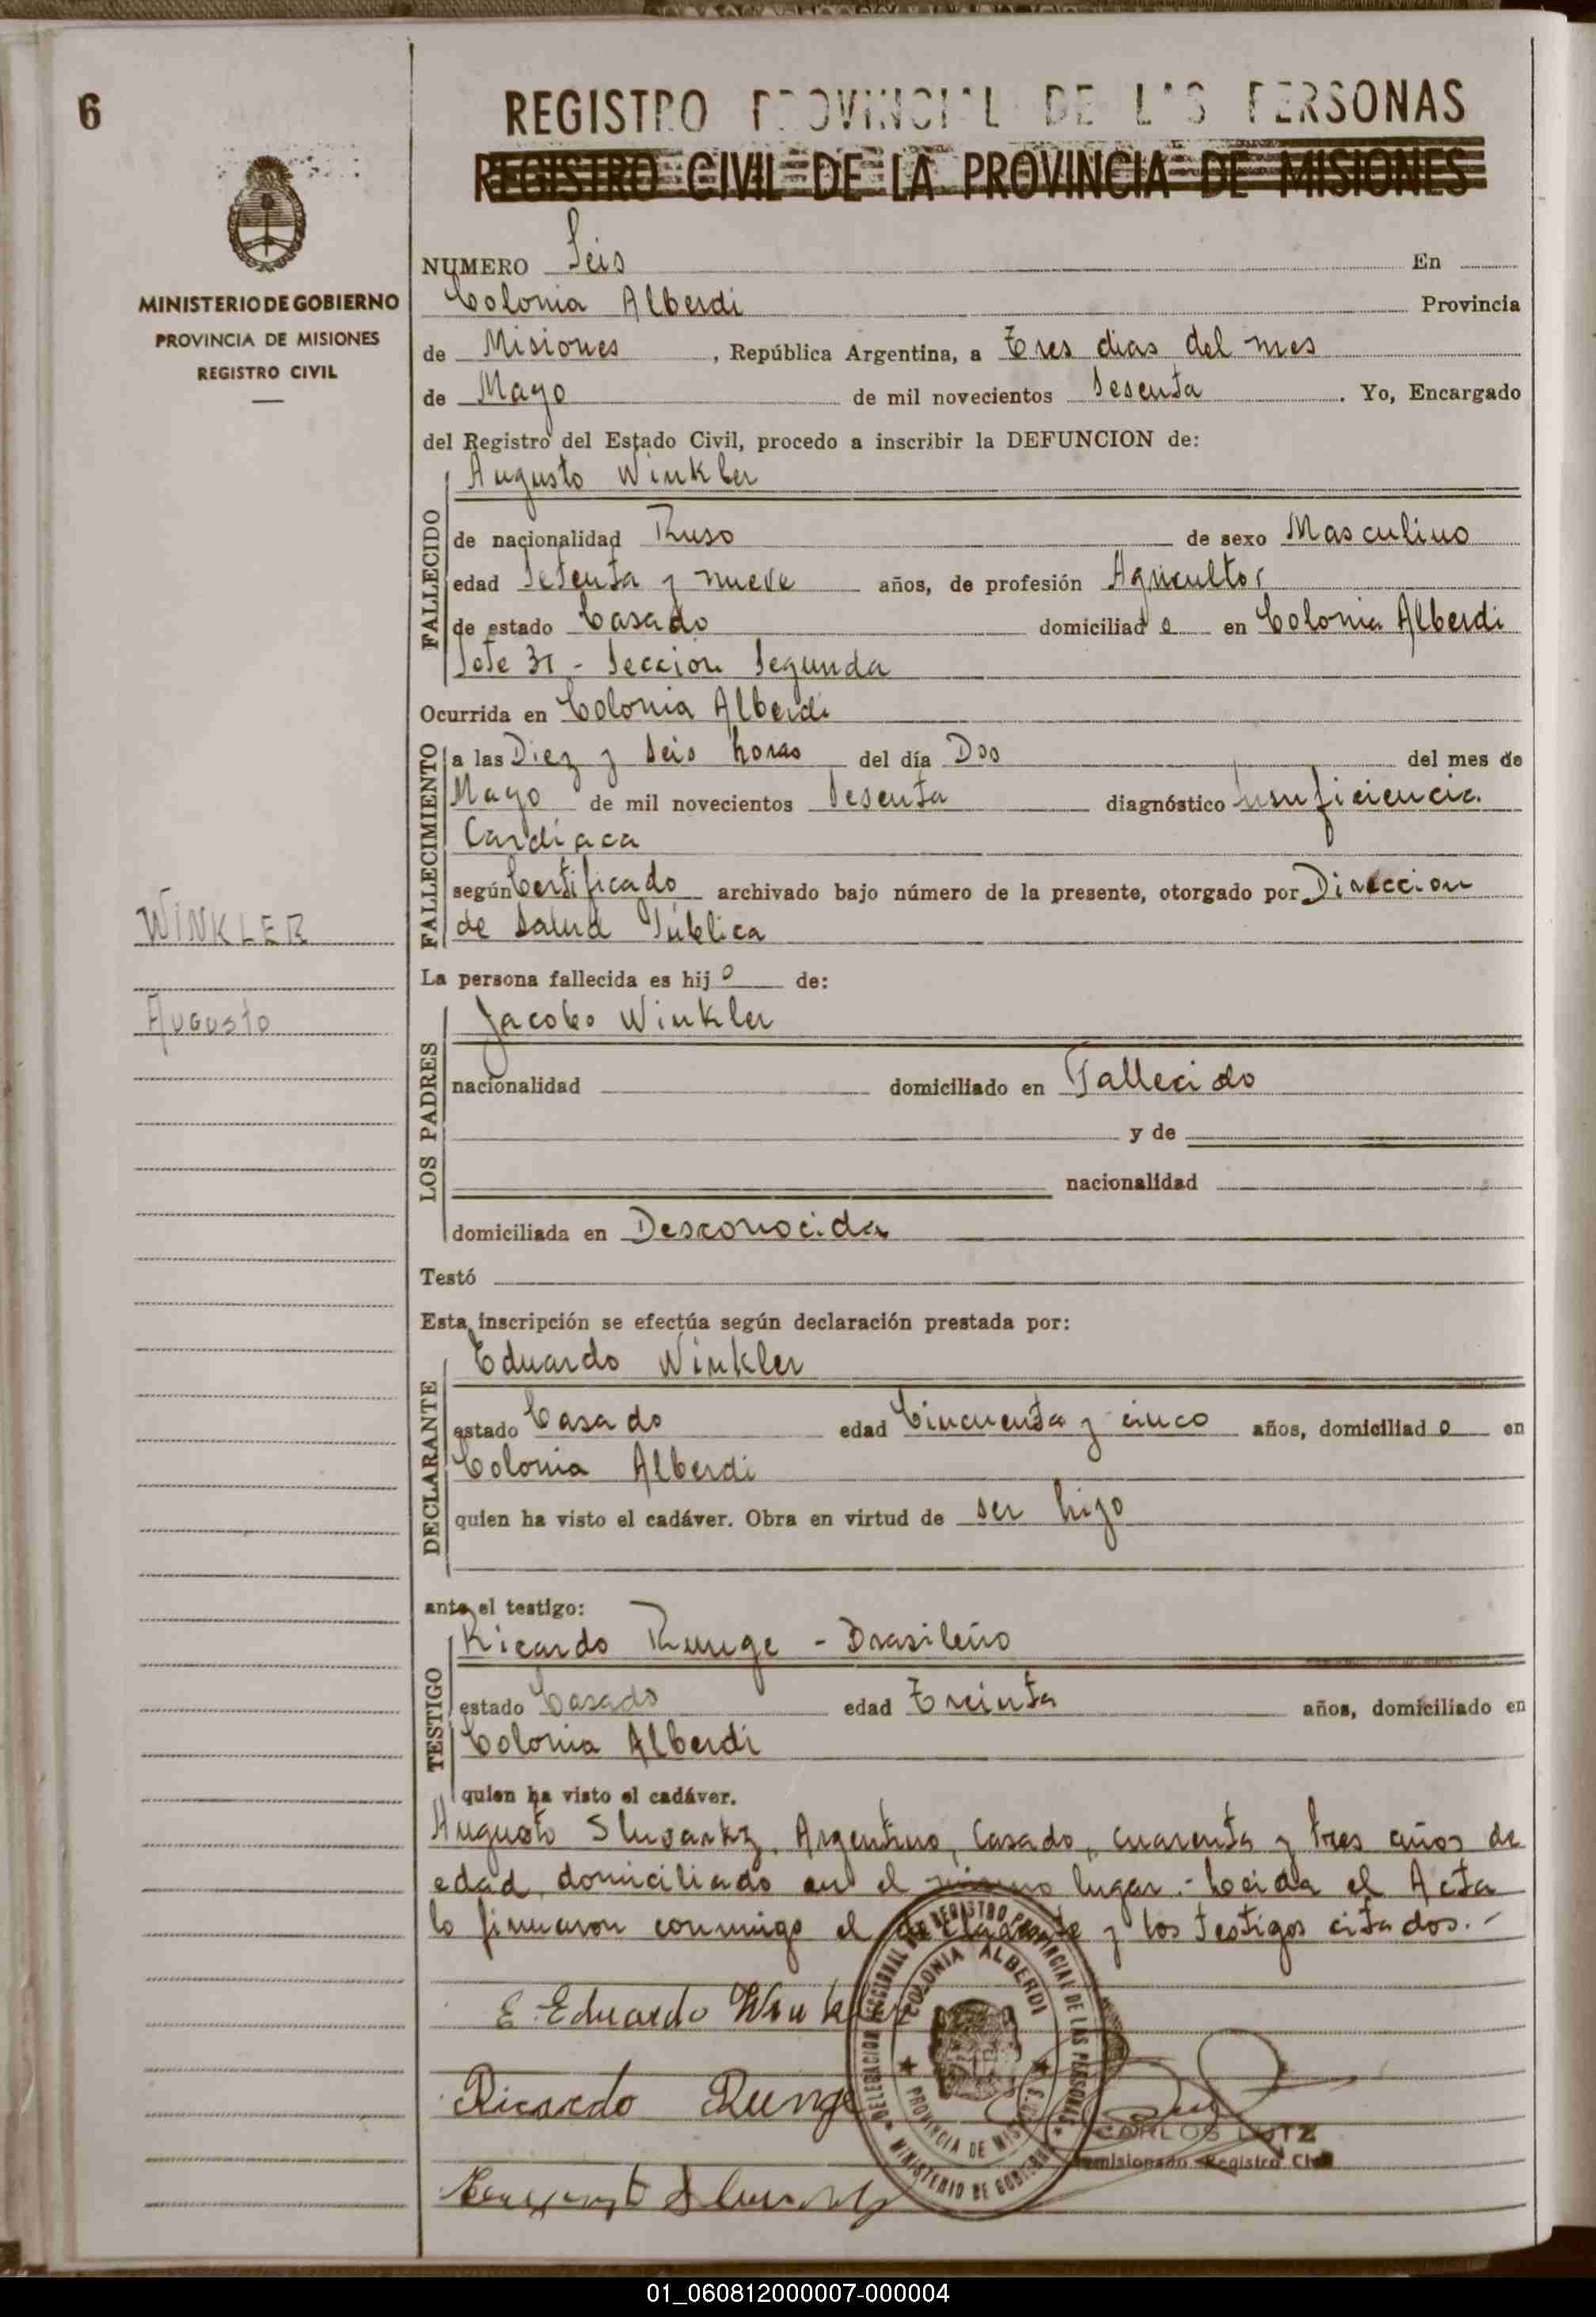 6
REGISTRO PROVINCIAL DE LAS PERSONAS
REGISTRO CIVIL DE LA PROVINCIA DE MISIONES
MINISTERIO DE GOBIERNO
PROVINCIA DE MISIONES
REGISTRO CIVIL
NUMERO Seis En
Colonia Alberdi Provincia
de Misiones, República Argentina, a Tres dias del mes
de Mayo de mil novecientos Sesenta. Yo, Encargado
del Registro del Estado Civil, procedo a inscribir la DEFUNCION de:
FALLECIDO
Augusto Winkler
de nacionalidad Ruso de sexo Masculino
edad Setenta y nueve años, de profesión Agricultor
de estado Casado domiciliado en Colonia Alberdi
Lote 31 - Seccion Segunda
Ocurrida en Colonia Alberdi
FALLECIMIENTO
a las Diez y Seis horas del día Dos del mes de
Mayo de mil novecientos Sesenta diagnóstico Insuficiencia
Cardíaca
según Certificado archivado bajo número de la presente, otorgado por Direccion
de Salud Pública
WINKLER
Augusto
La persona fallecida es hijo de:
LOS PADRES
Jacobo Winkler
nacionalidad domiciliado en Fallecido
y de
nacionalidad
domiciliada en Desconocida
Testó
Esta inscripción se efectúa según declaración prestada por:
DECLARANTE
Eduardo Winkler
estado Casado edad Cincuenta y cinco años, domiciliado en
Colonia Alberdi
quien ha visto el cadáver. Obra en virtud de ser hijo
ante el testigo:
TESTIGO
Ricardo Runge - Brasileño
estado Casado edad Treinta años, domiciliado en
Colonia Alberdi
quien ha visto el cadáver.
Augusto Sluvarkz, Argentino, Casado, cuarenta y tres años de
edad, domiciliado en el mismo lugar.- Leida el Acta
lo firmaron conmigo el declarante y los testigos citados.-
E. Eduardo Winkler
Ricardo Runge
DELEGACION SECCIONAL DEL REGISTRO PROVINCIAL DE LAS PERSONAS
COLONIA ALBERDI
PROVINCIA DE MISIONES
MINISTERIO DE GOBIERNO
CARLOS LUTZ
Comisionado Registro Civil
01_060812000007-000004